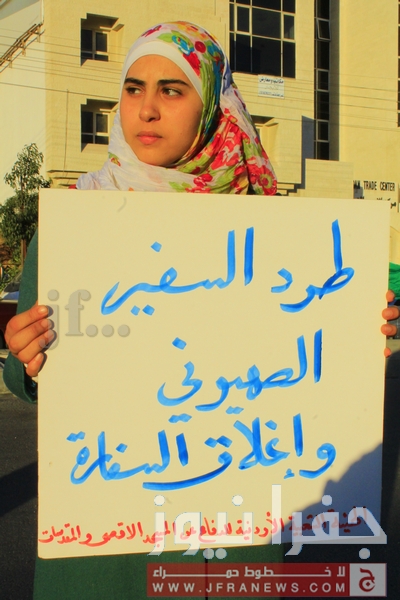 TRADE CENTER
طرد السفير
الصهيوني
وإغلاق السفارة
الأردنية للدفاع عن المسجد الاقصى والمقدسات
jf...
جفرا نيوز
لا خطوط حمراء
WWW.JFRANEWS.COM